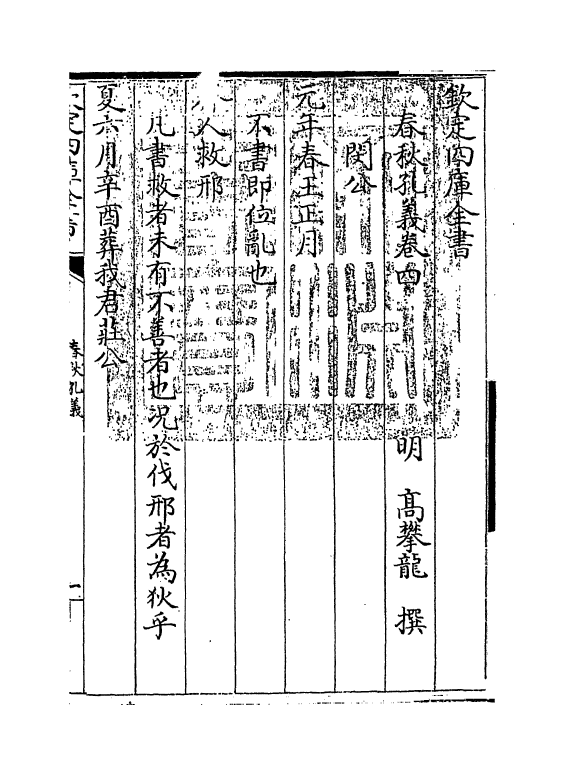 欽定四庫全書
春秋孔義卷四 明 高攀龍 撰
閔公
元年春王正月
不書即位亂也
人救邢
凡書救者未有不善者也況於伐邢者為狄乎
夏六月辛酉葬我君莊公
春秋孔義